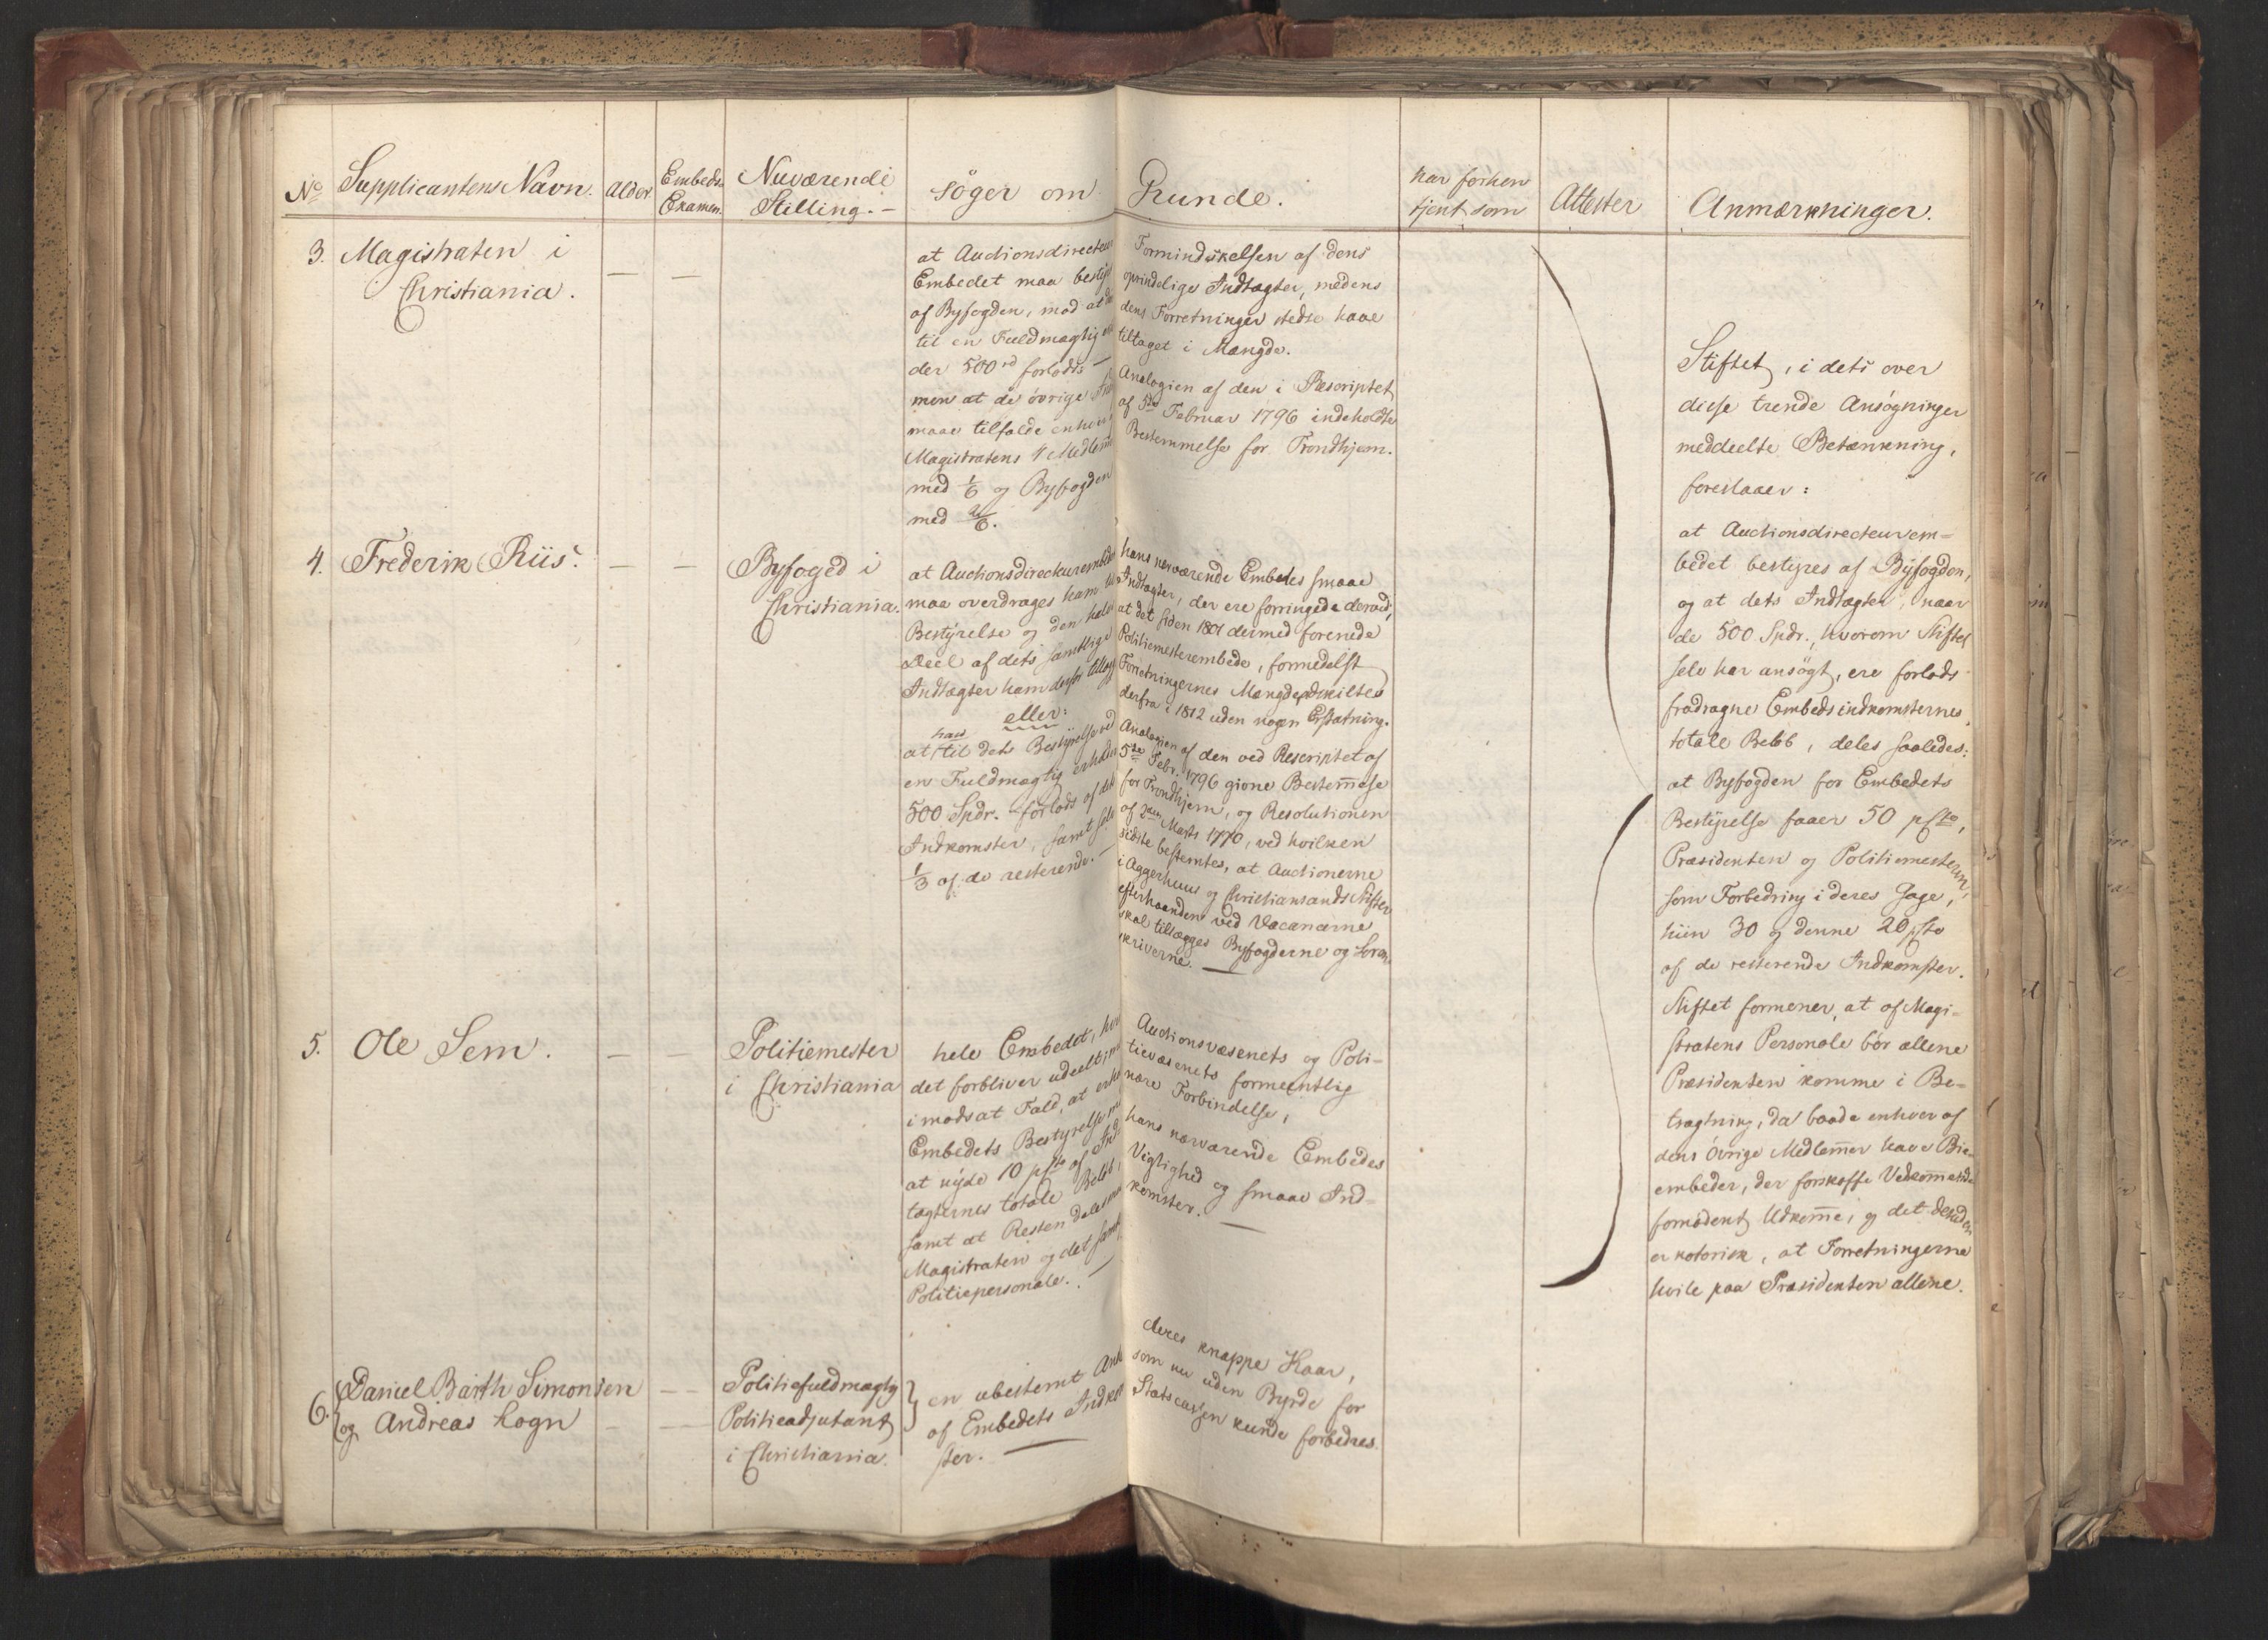 No
Supplicantens Navn.
Alder
Embeds-
Examen.
Nuværende
Stilling. —
søger om
Grunde.
har forhen
tjent som
Attester
Anmærkninger.
3. Magistraten i
Christiania.
— —
at Auctionsdirecteur
Embedet maa
af Byfogden, mod at
til en Fuldmægtig
der 500 rd forlods —
men at de øvrige
maae tilfalde enhver
Magistratens 4 Medlem
med 1/6 og Byfogden
med 2/6.
Formindskelsen af dens
oprindelige Indtægter, medens
dens Forretninger stedse have
tiltaget i Mængde.
Analogien af den i Rescriptet
af 5te Februar 1796 indeholdte
Bestemmelse for Trondhjem.
4. Frederik Riis.
— —
Byfoged i
Christiania.
at Auctionsdirecteurembedet
maa overdrages ham til
Bestyrelse og den halve
Deel af dets samtlige
Indtægter ham derfor tillagt
eller:
at han til dets Bestyrelse ved
en Fuldmægtig erholder
500 Spdr. forlods af dets
Indkomster, samt selv
1/3 af de resterende. —
hans nærværende Embedes smaae
Indtægter, der ere forringede derved,
at det siden 1801 dermed forenede
Politiemesterembede, formedelst
Forretningernes Mængde, adskiltes
derfra i 1812 uden nogen Erstatning.
Analogien af den ved Rescriptet af
5te Febr. 1796 givne Bestemmelse
for Trondhjem, og Resolutionen
af Marts 1770, ved hvilken
sidste bestemtes, at Auctionerne
i Aggerhuus og Christiansands Stifter
efterhaanden ved Vacancerne
skal tillægges Byfogderne og Soren-
skriverne. —
5. Ole Sem.
— —
Politiemester
i Christiania
hele Embedet, hvis
det forbliver udeelt;
i modsat Fald, at erholde
Embedets Bestyrelse mod
at nyde 10 pCto af Ind-
tægternes totale Beløb,
samt at Resten deles mellem
Magistraten og det samtlige
Politiepersonale. —
Auctionsvæsenets og Poli-
tievæsenets formeentlig
nære Forbindelse,
hans nærværende Embedes
Vigtighed og smaae Ind-
komster. —
6. Daniel Barth Simonsen
og Andreas Hogn
— —
— —
Politiefuldmægtig
Politieadjutant
i Christiania.
en ubestemt
af Embedets
ster. —
deres knappe Kaar,
som nu uden Byrde for
Statscassen kunde forbedres.
Stiftet, i dets over
disse trende Ansøgninger
meddeelte Betænkning,
foreslaaer:
at Auctionsdirecteurem-
bedet bestyres af Byfogden,
og at dets Indtægter, naar
de 500 Spdr., hvorom Stiftet
selv har ansøgt, ere forlods
fradragne Embedsindkomsternes
totale Beløb, deles saaledes:
at Byfogden for Embedets
Bestyrelse faaer 50 pCto,
Præsidenten og Politiemesteren,
som Forbedring i deres Gage,
hiin 30 og denne 20 pCto
af de resterende Indkomster.
Stiftet formener, at af Magi-
stratens Personale bør allene
Præsidenten komme i Be-
tragtning, da baade enhver af
dens øvrige Medlemmer have Bie-
embeder, der forskaffe Vedkommende
fornødent Udkomme, og det desuden
er notorisk, at Forretningerne
hvile paa Præsidenten allene.